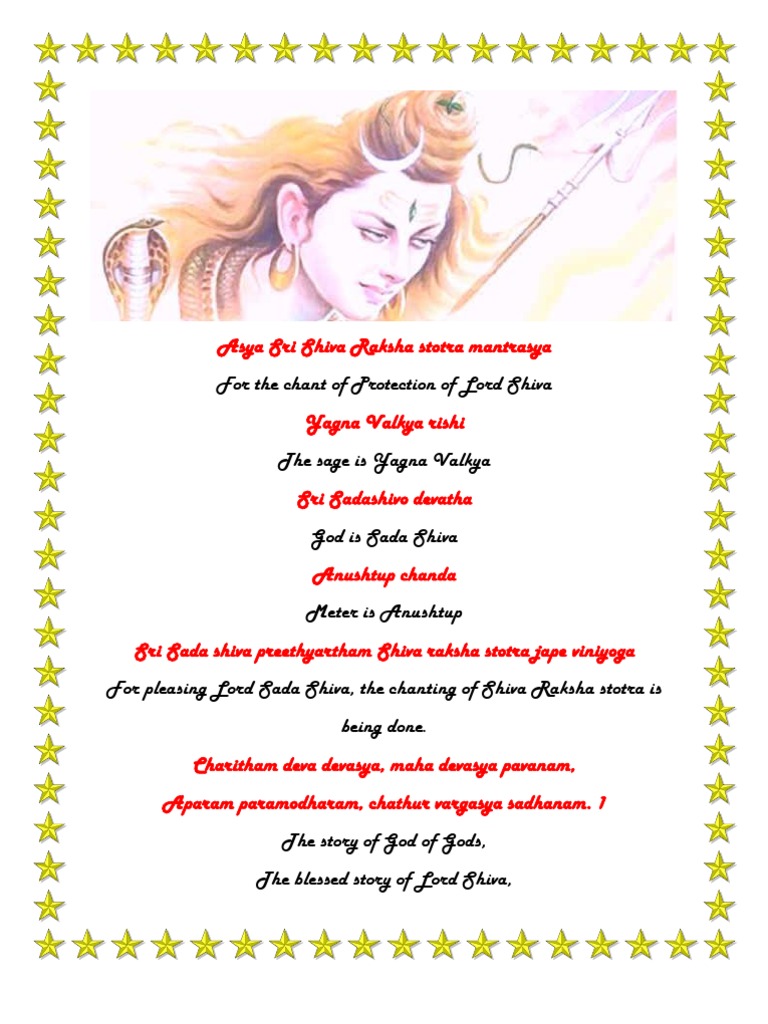 Asya Sri Shiva Raksha stotra mantrasya
For the chant of Protection of Lord Shiva
Yagna Valkya rishi
The sage is Yagna Valkya
Sri Sadashivo devatha
God is Sada Shiva
Anushtup chanda
Meter is Anushtup
Sri Sada shiva preethyartham Shiva raksha stotra jape viniyoga
For pleasing Lord Sada Shiva, the chanting of Shiva Raksha stotra is
being done.
Charitham deva devasya, maha devasya pavanam,
Aparam paramodharam, chathur vargasya sadhanam. 1
The story of God of Gods,
The blessed story of Lord Shiva,